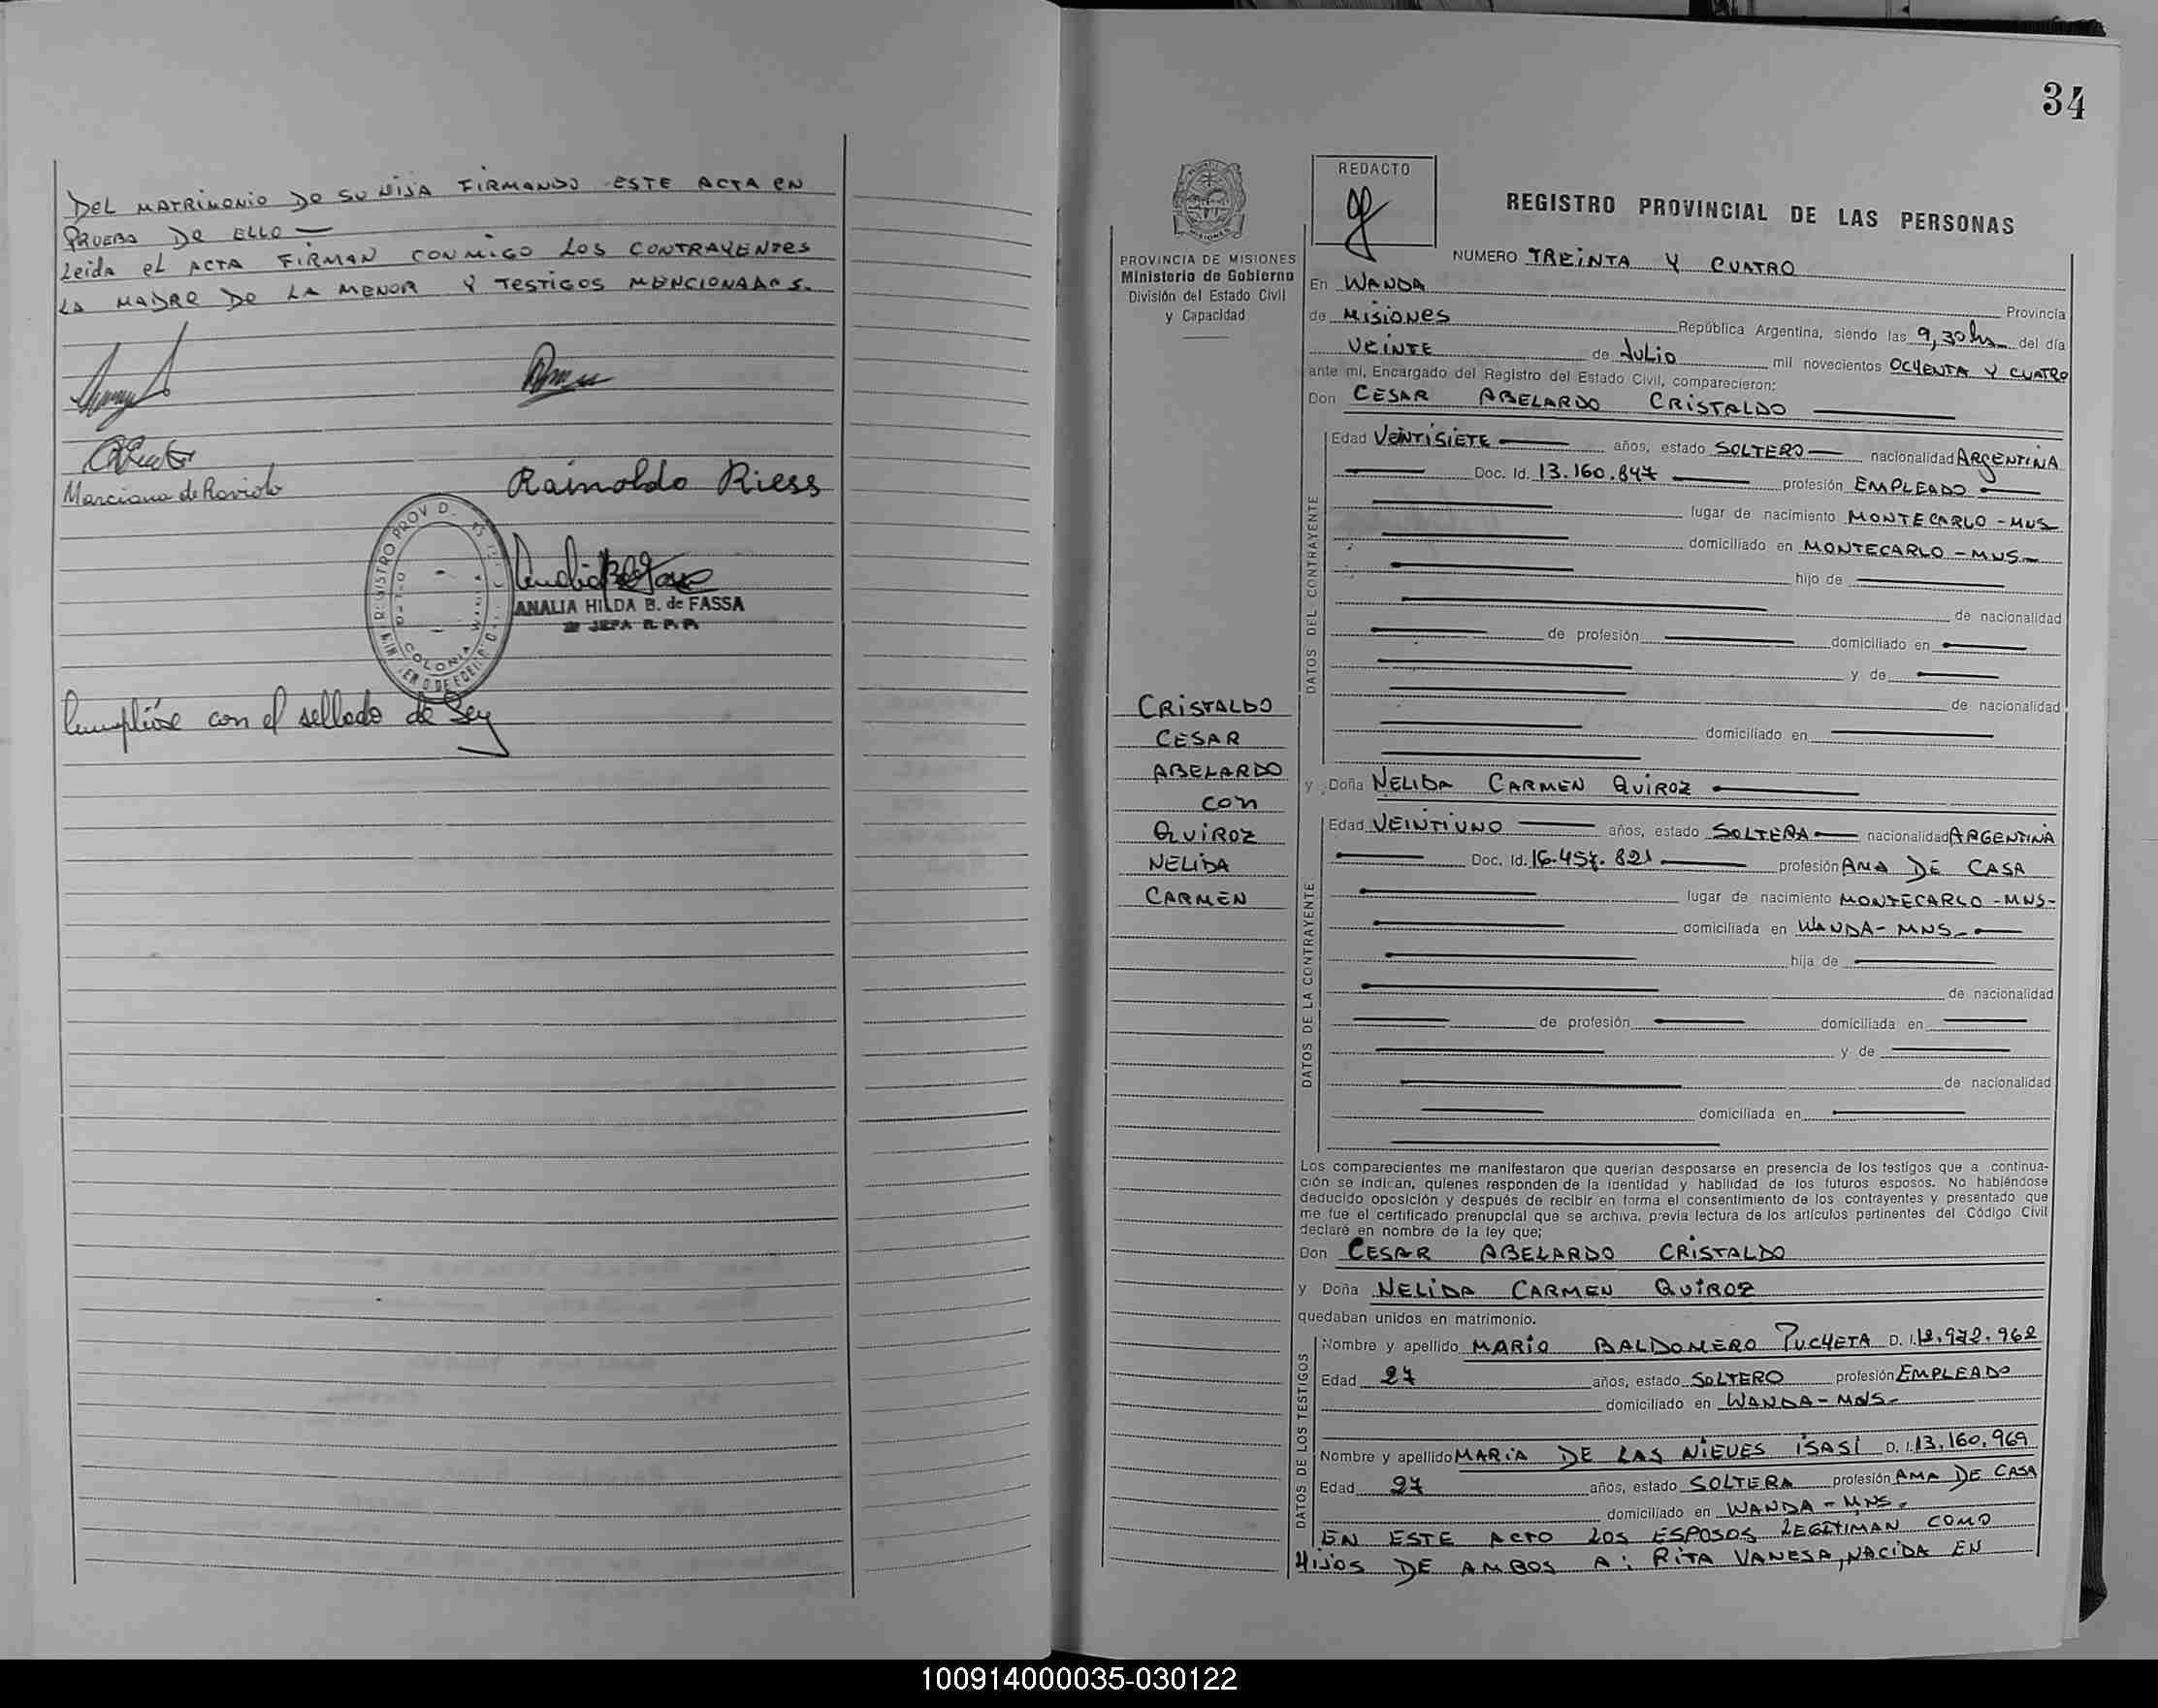 DEL MATRIMONIO DE SU HIJA FIRMANDO ESTE ACTA EN
PRUEBA DE ELLO —
Leida el ACTA FIRMAN CONMIGO LOS CONTRAYENTES
LA MADRE DE LA MENOR Y TESTIGOS MENCIONADOS.
Marciana de Raviolo
Rainoldo Riess
ANALIA HILDA B. de FASSA
JEFA R. P. P.
COLONIA WANDA
Cumplióse con el sellado de Ley
34
REDACTO
REGISTRO PROVINCIAL DE LAS PERSONAS
PROVINCIA DE MISIONES
Ministerio de Gobierno
División del Estado Civil
y Capacidad
NUMERO TREINTA Y CUATRO
En WANDA Provincia
de MISIONES República Argentina, siendo las 9,30 hs del día
VEINTE de JULIO mil novecientos OCHENTA Y CUATRO
ante mi, Encargado del Registro del Estado Civil, comparecieron:
Don CESAR ABELARDO CRISTALDO
DATOS DEL CONTRAYENTE
Edad VEINTISIETE años, estado SOLTERO nacionalidad ARGENTINA
Doc. Id. 13.160.847 profesión EMPLEADO
lugar de nacimiento MONTECARLO - MNS
domiciliado en MONTECARLO - MNS
hijo de
de nacionalidad
de profesión domiciliado en
y de
de nacionalidad
domiciliado en
CRISTALDO
CESAR
ABELARDO
CON
QUIROZ
NELIDA
CARMEN
y Doña NELIDA CARMEN QUIROZ
DATOS DE LA CONTRAYENTE
Edad VEINTIUNO años, estado SOLTERA nacionalidad ARGENTINA
Doc. Id. 16.457.821 profesión AMA DE CASA
lugar de nacimiento MONTECARLO - MNS-
domiciliada en WANDA - MNS
hija de
de nacionalidad
de profesión domiciliada en
y de
de nacionalidad
domiciliada en
Los comparecientes me manifestaron que querían desposarse en presencia de los testigos que a continua-
ción se indican, quienes responden de la identidad y habilidad de los futuros esposos. No habiéndose
deducido oposición y después de recibir en forma el consentimiento de los contrayentes y presentado que
me fue el certificado prenupcial que se archiva, previa lectura de los artículos pertinentes del Código Civil
declaré en nombre de la ley que;
Don CESAR ABELARDO CRISTALDO
y Doña NELIDA CARMEN QUIROZ
quedaban unidos en matrimonio.
DATOS DE LOS TESTIGOS
Nombre y apellido MARIO BALDOMERO PUCHETA D. I. 12.972.962
Edad 27 años, estado SOLTERO profesión EMPLEADO
domiciliado en WANDA - MNS-
Nombre y apellido MARIA DE LAS NIEVES ISASI D. I. 13.160.969
Edad 27 años, estado SOLTERA profesión AMA DE CASA
domiciliado en WANDA - MNS.
EN ESTE ACTO LOS ESPOSOS LEGITIMAN COMO
HIJOS DE AMBOS A: RITA VANESA, NACIDA EN
100914000035-030122